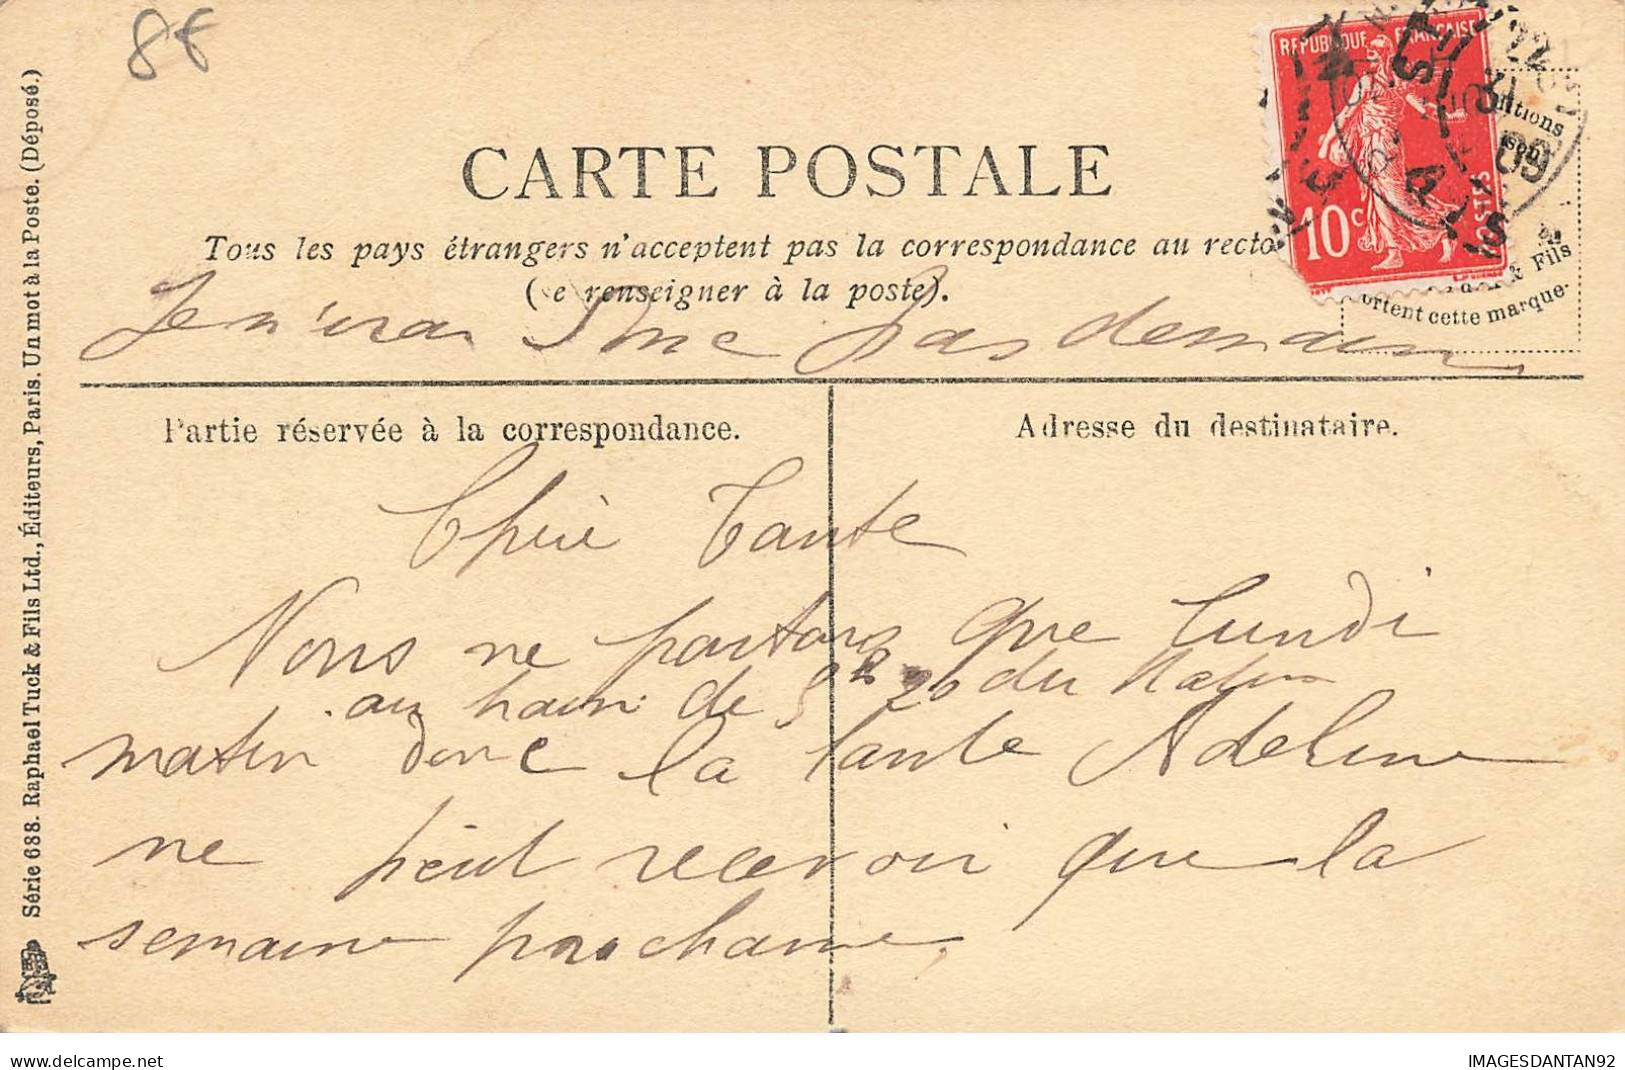 8f
CARTE POSTALE
Tous les pays étrangers n'acceptent pas la correspondance au recto
(Se renseigner à la poste).
Je n'irai donc pas demain
Partie réservée à la correspondance.
Adresse du destinataire.
Chère Tante
Nous ne partons que lundi
au train de 8h 20 du Matin
matin donc la tante Adeline
ne peut recevoir que la
semaine prochaine.
Série 688. Raphael Tuck & Fils Ltd., Éditeurs, Paris. Un mot à la Poste. (Déposé.)
REPUBLIQUE FRANÇAISE
10c
POSTES
09
& Fils
portent cette marque.
delcampe.net
IMAGESDANTAN92